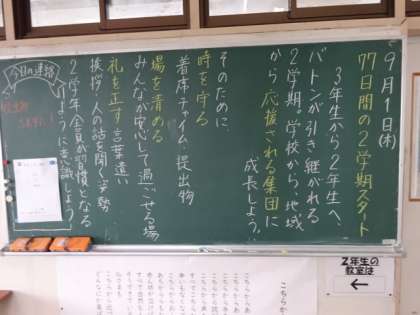 9月1日(木)
77日間の2学期スタート
3年生から2年生へ、
バトンが引き継がれる
2学期。学校から、地域
から応援される集団に
成長しよう。
そのために、
時を守る
着席・チャイム・提出物
場を清める
みんなが安心して過ごせる場
礼を正す 言葉遣い
挨拶・人の話を聞く姿勢
2学年全員が習慣となる
ように意識しよう
今日の連絡
2年生の
教室は
←
こちらか